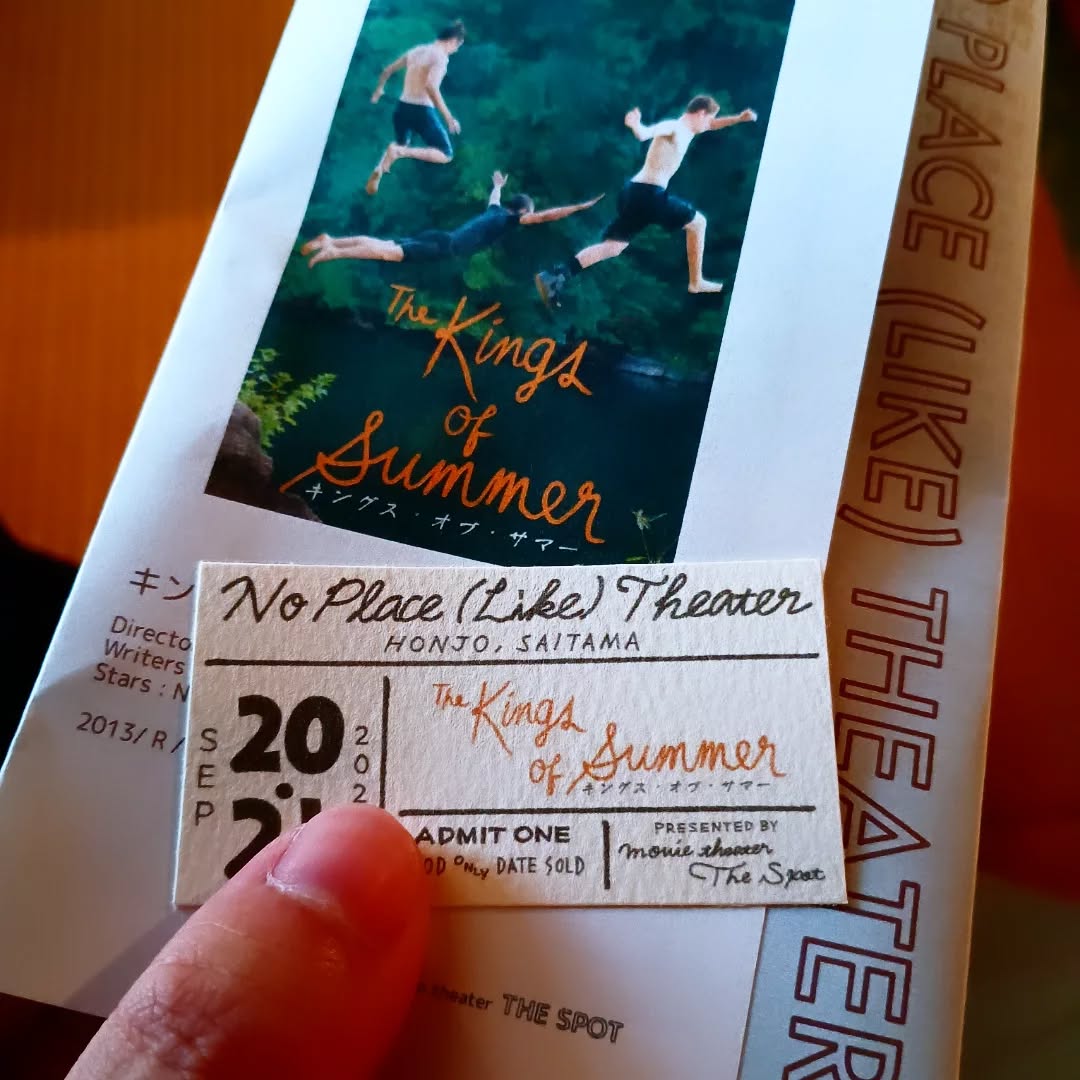 The Kings
of
Summer
キングス・オブ・サマー
PLACE (LIKE) THEATER
キン
Directo
Writers
Stars : N
2013/ R /
No Place (Like) Theater
HONJO, SAITAMA
SEP
20
21
202
The Kings
of Summer
キングス・オブ・サマー
ADMIT ONE
OD ONLY DATE SOLD
PRESENTED BY
movie theater
The Spot
theater THE SPOT